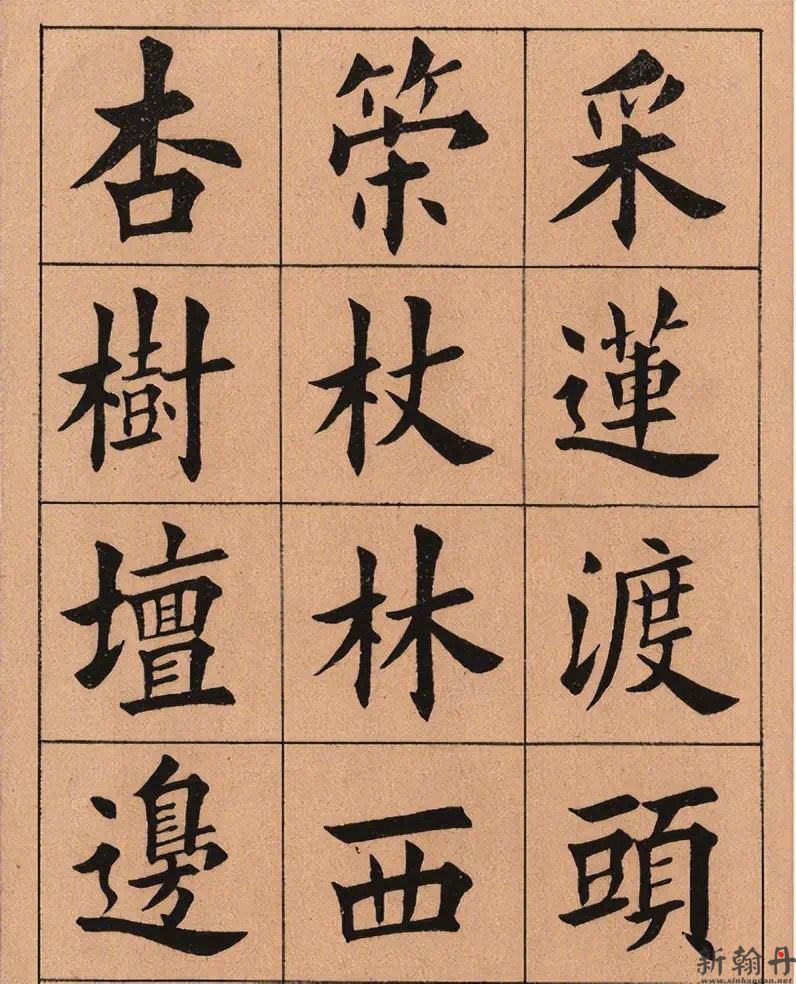 采蓮渡頭
筞杖林西
杏樹壇邊
新翰丹
www.xinhandan.net